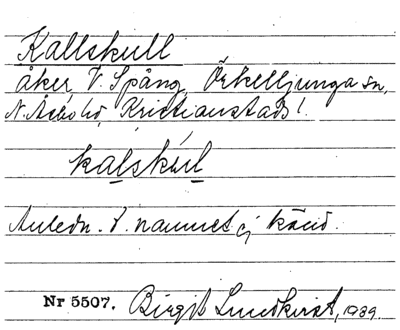 Kallskull
åker, V. Spång, Örkelljunga sn,
N. Åsbo hd Kristianstads l.
kalskul
Anledn. t. namnet ej känd.
Nr 5507. Birgit Lundkvist, 1939.